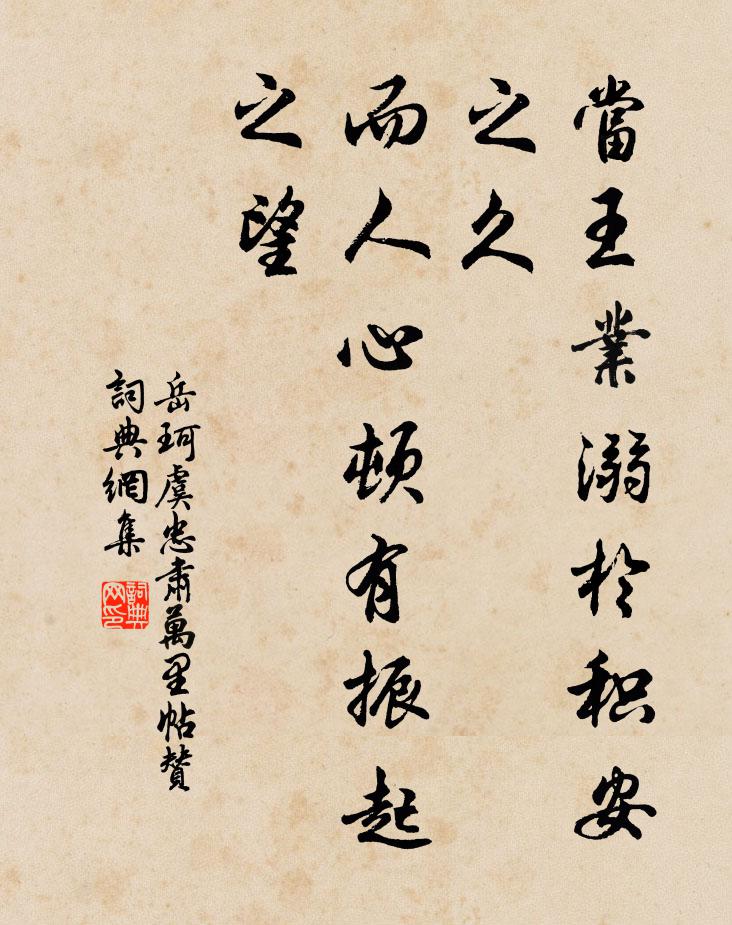 當王業溺於积安
之久
而人心頓有振起
之望
岳珂虞忠肅萬里帖贊
詞典網集
詞典网印